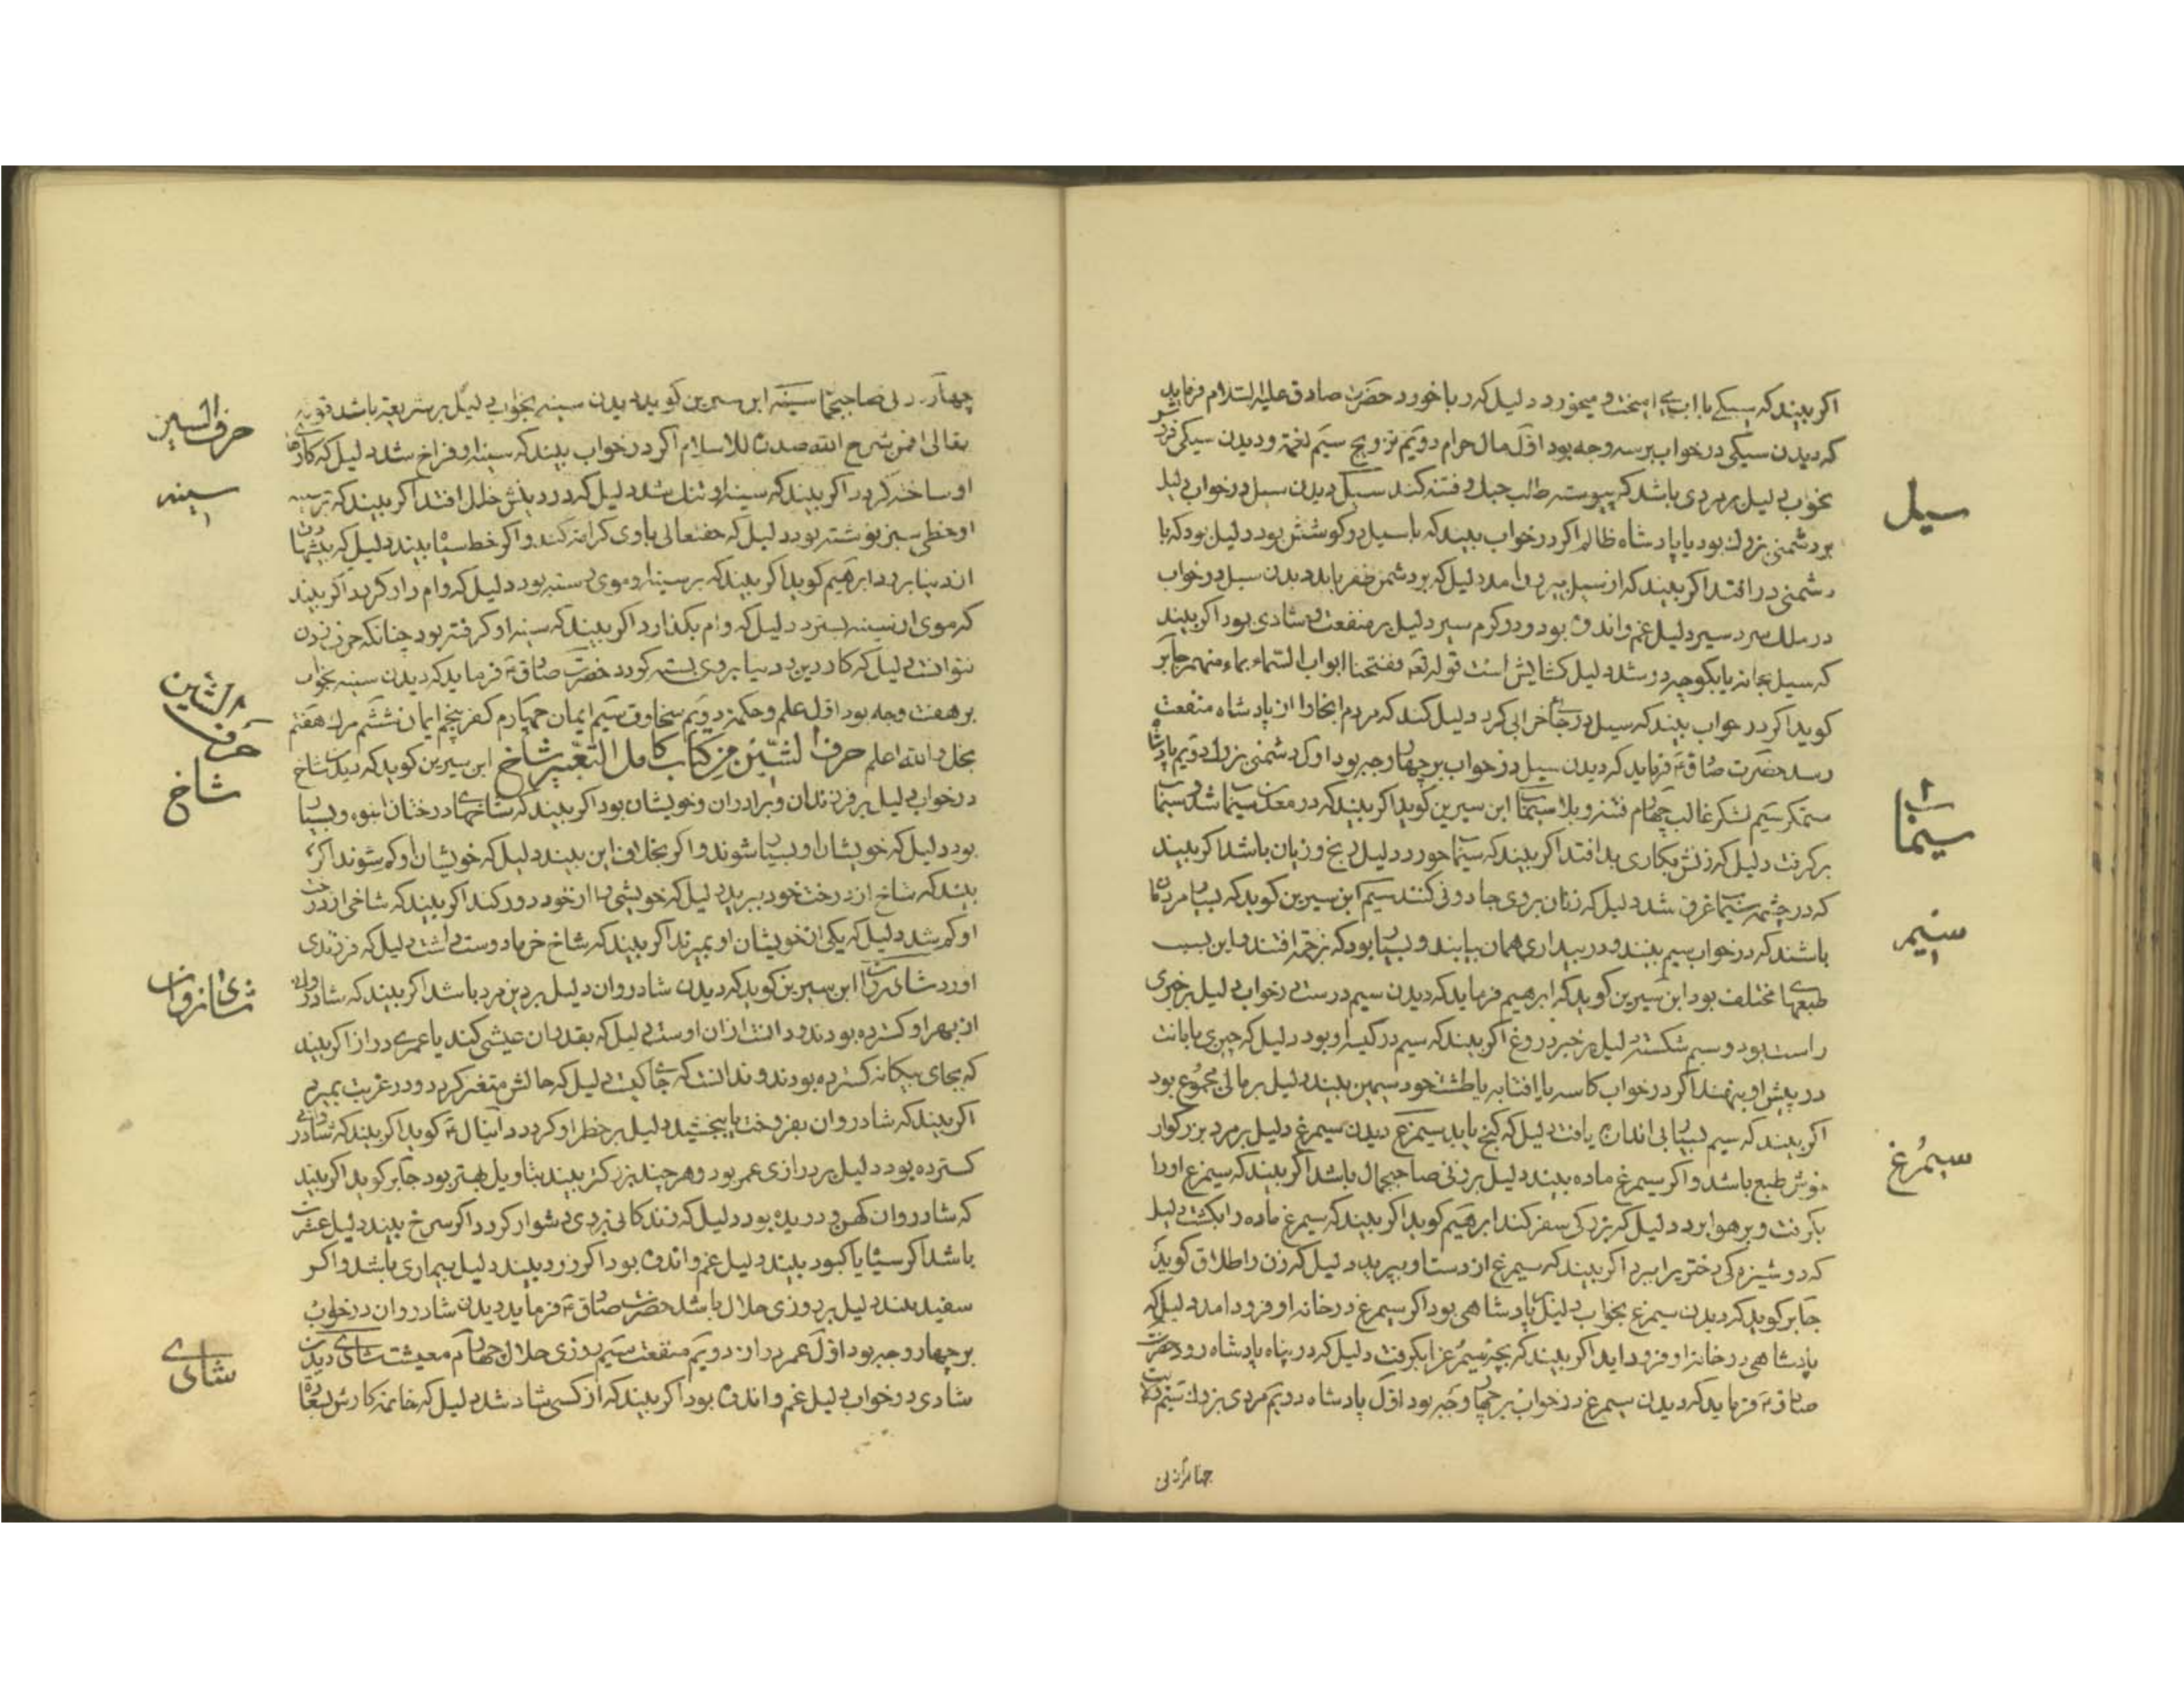 اکر بیند که سیکی با اب امیخت و میخورد دلیل که ربا خورد حضرت صادق علیه السلام فرماید
که دیدن سیکی در خواب بر سه وجه بود اول مال حرام دویم تزویج سیم نعمة و دیدن سیکی
بخواب دلیل بر مردی باشد که پیوسته طالب جنك و فتنه کند سیل دیدن سیل در خواب دلیل
بر دشمنی بزرك بود یا پادشاه ظالم اکر در خواب بیند که با سیل در کوشش بود دلیل بود که با
دشمنی در افتد اکر بیند که از سیل بیرون امد دلیل که بر دشمن ظفر یابد دیدن سیل در خواب
در ملك سردسیر دلیل غم و اندوه بود و در کرم سیر دلیل بر منفعت و شادی بود اکر بیند
که سیل بخانه یا بکوچه در شد دلیل کشایش است قوله تع ففتحنا ابواب السماء بماء منهمر جابر
کوید اکر در خواب بیند که سیل در جای خرابی کرد دلیل کند که مردم انجا را از پادشاه منفعت
رسد حضرت صادق ع فرماید که دیدن سیل در خواب بر چهار وجه بود اول دشمنی بزرك دویم پادشاه
ستمکر سیم لشکر غالب چهارم فتنه و بلا سیماب ابن سیرین کوید اکر بیند که در معدن سیماب شد و سیماب
برکرفت دلیل که زنش بکاری بد افتد اکر بیند که سیماب خورد دلیل رنج و زیان باشد اکر بیند
که در چشمه سیماب غرق شد دلیل که زنان بر وی جادوئی کنند سیم ابن سیرین کوید که بسیار مردمان
باشند که در خواب سیم بینند و در بیداری همان یابند و بسیار بود که بزحمة افتند و این بسبب
طبعهای مختلف بود ابن سیرین کوید که ابرهیم فرماید که دیدن سیم درست در خواب دلیل بر خبری
راست بود و سیم شکسته دلیل بر خبر دروغ اکر بیند که سیم در کیسه او بود دلیل که چیزی بامانت
در پیش او بنهند اکر در خواب کاسه یا افتابه یا طشت خود سیمین بیند دلیل بر مالی مجموع بود
اکر بیند که سیم بسیار بی اندازه یافت دلیل که کنج یابد سیمرغ دیدن سیمرغ دلیل بر مرد بزرکوار
خوش طبع باشد و اکر سیمرغ ماده بیند دلیل بر زنی صاحبجمال باشد اکر بیند که سیمرغ او را
بکرفت و بر هوا برد دلیل که بزرکی سفر کند ابرهیم کوید اکر بیند که سیمرغ ماده را بکشت دلیل
که دوشیزه کی دختر برا ببرد اکر بیند که سیمرغ از دست او بپرید دلیل که زن را طلاق کوید
جابر کوید که دیدن سیمرغ بخواب دلیل پادشاهی بود اکر سیمرغ در خانه او فرود امد دلیل که
پادشاهی در خانه او فرود اید اکر بیند که بچه سیمرغ را بکرفت دلیل که در پناه پادشاه رود حضرت
صادق ع فرماید که دیدن سیمرغ در خواب بر چهار وجه بود اول پادشاه دویم مردی بزرك سیم
چهارم زنی
سیل
سیماب
سیم
سیمرغ
چهارم زنی صاحبجمال سینه ابن سیرین کوید دیدن سینه بخواب دلیل بر شریعة باشد قوله
تعالی افمن شرح الله صدره للاسلام اکر در خواب بیند که سینه او فراخ شد دلیل که کارهای
او ساخته کردد اکر بیند که سینه او تنك شد دلیل که در دینش خلل افتد اکر بیند که بر سینه
او خطی سبز نوشته بود دلیل که حقتعالی با وی کرامة کند و اکر خط سیاه بیند دلیل که پشیمان
از دنیا برود ابرهیم کوید اکر بیند که بر سینه او موی رسته بود دلیل که وام دار کردد اکر بیند
که موی از سینه بسترد دلیل که وام بکذارد اکر بیند که سینه او کرفته بود چنانکه حرف زدن
نتوانست دلیل که کار دین و دنیا بر وی بسته کردد حضرت صادق ع فرماید که دیدن سینه بخواب
بر هفت وجه بود اول علم و حکمة دویم سخاوة سیم ایمان چهارم کفر پنجم ایمان ششم مرك هفتم
بخل والله اعلم حرف الشین من کتاب کامل التعبیر شاخ ابن سیرین کوید که دیدن شاخ
در خواب دلیل بر فرزندان و برادران و خویشان بود اکر بیند که شاخهای درختان انبوه و بسیار
بود دلیل که خویشان او بسیار شوند و اکر بخلاف این بیند دلیل که خویشان او کم شوند اکر
بیند که شاخ از درخت خود ببرید دلیل که خویشی را از خود دور کند اکر بیند که شاخی از درخت
او کم شد دلیل که یکی از خویشان او بمیرند اکر بیند که شاخ خرما در دست داشت دلیل که فرزندی
اورد شادروان ابن سیرین کوید که دیدن شادروان دلیل بر دین مرد باشد اکر بیند که شادروان
از بهر او کسترده بودند و دانست از ان اوست دلیل که بقدر ان عیشی کند یا عمری دراز اکر بیند
که بجای بیکانه کسترده بودند و ندانست که جای کیست دلیل که حالش متغیر کردد و در غربت بمیرد
اکر بیند که شادروان بفروخت یا ببخشید دلیل بر خطر او کردد دانیال ع کوید اکر بیند که شادروانی
کسترده بود دلیل بر درازی عمر بود و هر چند بزرکتر بیند بتاویل بهتر بود جابر کوید اکر بیند
که شادروان کهن و دریده بود دلیل که زندکانی بر وی دشوار کردد اکر سرخ بیند دلیل عشرت
باشد اکر سیاه یا کبود بیند دلیل غم و اندوه بود اکر زرد بیند دلیل بیماری باشد و اکر
سفید بیند دلیل بر روزی حلال باشد حضرت صادق ع فرماید دیدن شادروان در خواب
بر چهار وجه بود اول عمر دراز دویم منفعت سیم روزی حلال چهارم معیشت شادی دیدن
شادی در خواب دلیل غم و اندوه بود اکر بیند که از کسی شاد شد دلیل که خاتمه کارش بسعادة
حرف السین
سینه
حرف الشین
شاخ
شادروان
شادی